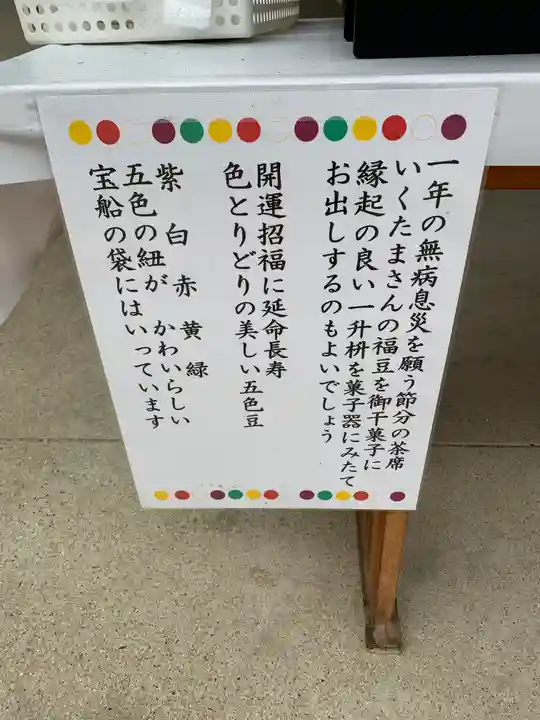 一年の無病息災を願う節分の茶席
いくたまさんの福豆を御干菓子に
縁起の良い一升枡を菓子器にみたて
お出しするのもよいでしょう
開運招福に延命長寿
色とりどりの美しい五色豆
紫 白 赤 黄 緑
五色の紐が かわいらしい
宝船の袋にはいっています